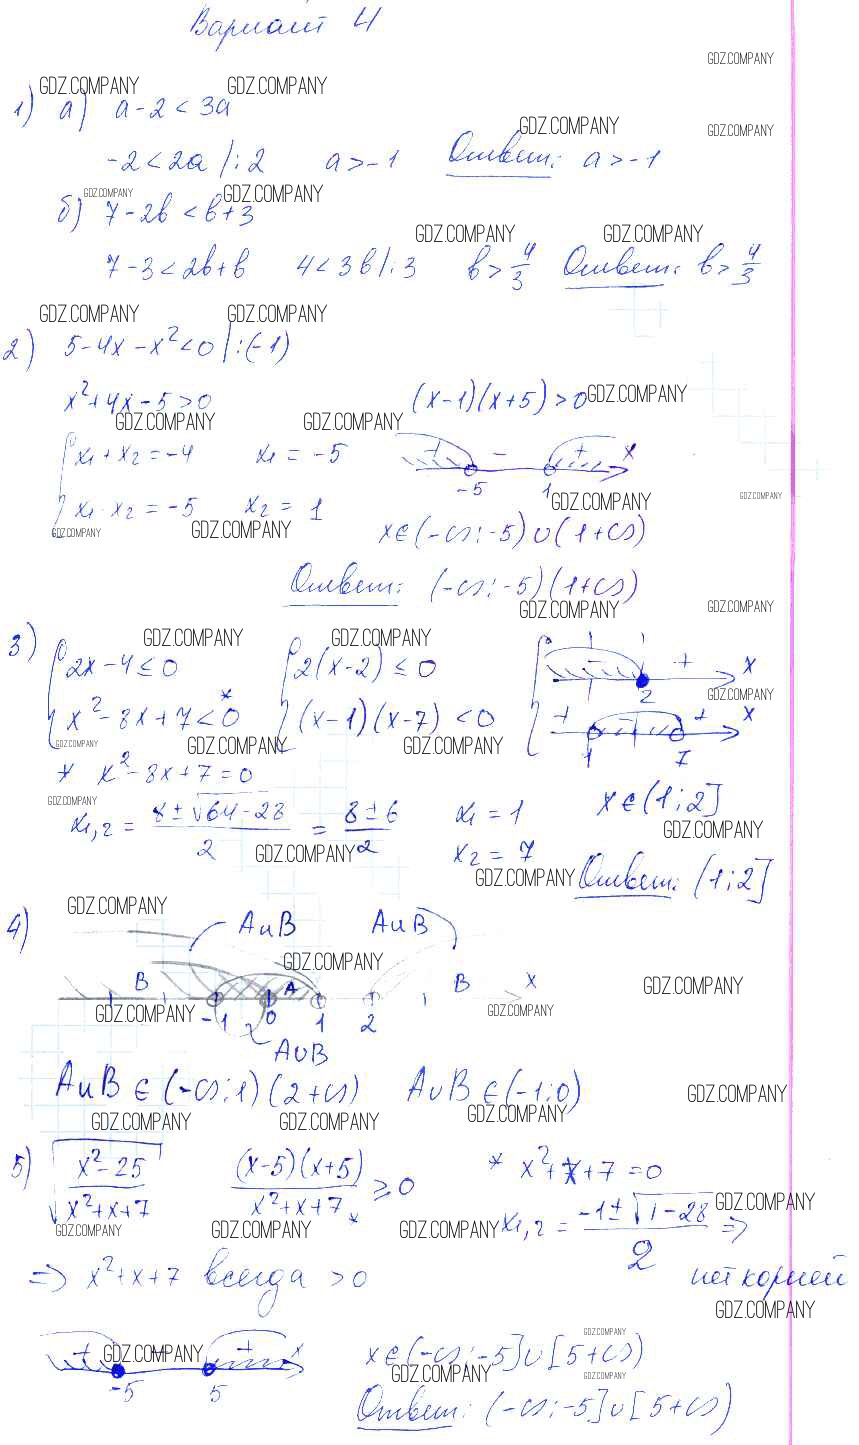 Вариант 4
GDZ.COMPANY
GDZ.COMPANY GDZ.COMPANY
1) а) a - 2 < 3a
GDZ.COMPANY GDZ.COMPANY
-2 < 2a | : 2   a > -1   Ответ: a > -1
GDZ.COMPANY GDZ.COMPANY
б) 7 - 2b < b + 3
GDZ.COMPANY GDZ.COMPANY
7 - 3 < 2b + b   4 < 3b | : 3   b > 4/3   Ответ: b > 4/3
GDZ.COMPANY GDZ.COMPANY
2) 5 - 4x - x² < 0 | : (-1)
x² + 4x - 5 > 0   (x-1)(x+5) > 0 GDZ.COMPANY
GDZ.COMPANY GDZ.COMPANY
{ x₁ + x₂ = -4   x₁ = -5   + - + x
-5 1
x₁ · x₂ = -5   x₂ = 1   GDZ.COMPANY GDZ.COMPANY
GDZ.COMPANY GDZ.COMPANY   x ∈ (-∞; -5) ∪ (1 +∞)
Ответ: (-∞; -5) (1 +∞)
GDZ.COMPANY GDZ.COMPANY
3) GDZ.COMPANY GDZ.COMPANY
{ 2x - 4 ≤ 0   { 2(x-2) ≤ 0   - + x
2 GDZ.COMPANY
x² - 8x + 7 < 0 *   (x-1)(x-7) < 0   + - + x
GDZ.COMPANY GDZ.COMPANY GDZ.COMPANY   1 7
* x² - 8x + 7 = 0
GDZ.COMPANY
x₁,₂ = (8 ± √64-28)/2 = (8 ± 6)/2   x₁ = 1   x ∈ (1; 2]
GDZ.COMPANY
GDZ.COMPANY   x₂ = 7
GDZ.COMPANY Ответ: (1; 2]
GDZ.COMPANY
4) A∪B   A∪B
GDZ.COMPANY
B A B x GDZ.COMPANY
GDZ.COMPANY -1 0 1 2 GDZ.COMPANY
A∪B
A∪B ∈ (-∞; 1) (2 +∞)   A∪B ∈ (-1; 0) GDZ.COMPANY
GDZ.COMPANY GDZ.COMPANY GDZ.COMPANY
5) √(x²-25)/(x²+x+7)   (x-5)(x+5)/(x²+x+7) * ≥ 0   * x² + x + 7 = 0
GDZ.COMPANY GDZ.COMPANY GDZ.COMPANY x₁,₂ = (-1 ± √1-28)/2 ⇒ GDZ.COMPANY
⇒ x² + x + 7 всегда > 0   нет корней
GDZ.COMPANY
GDZ.COMPANY
+ GDZ.COMPANY - + x   x ∈ (-∞; -5] ∪ [5 +∞)
-5 5   GDZ.COMPANY GDZ.COMPANY
Ответ: (-∞; -5] ∪ [5 +∞)